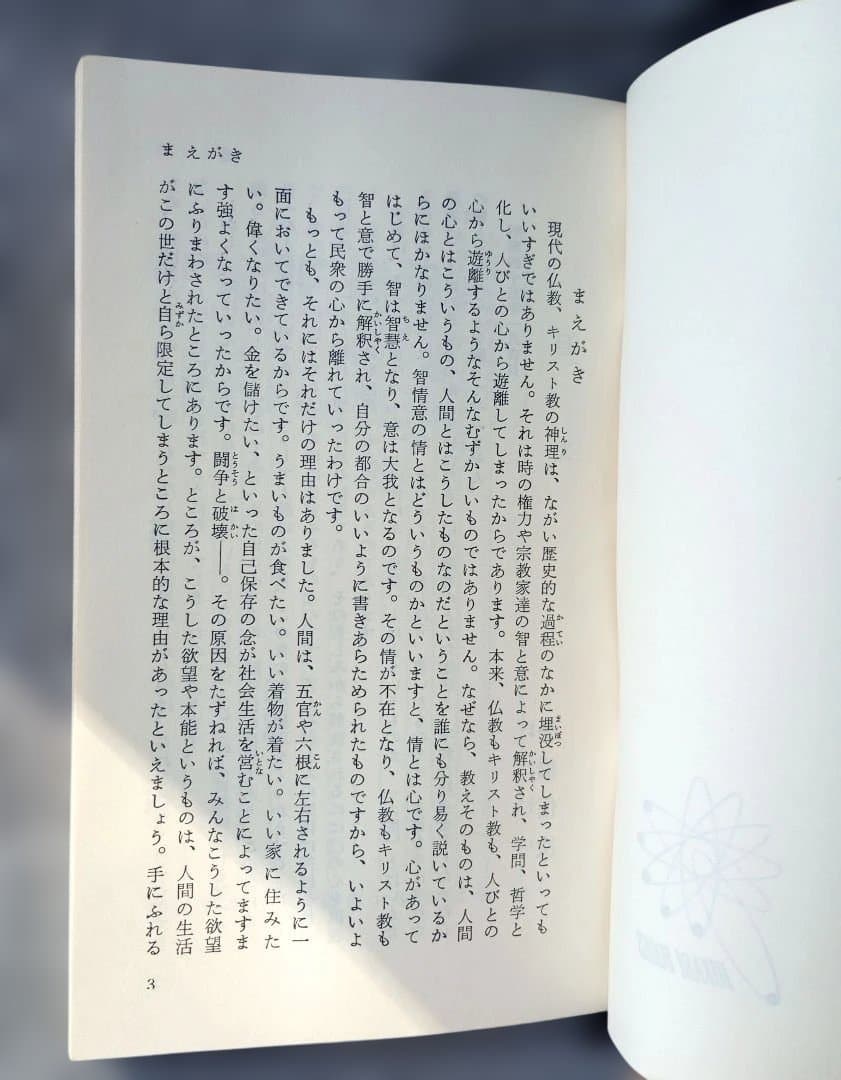 まえがき
まえがき
現代の仏教、キリスト教の神理は、ながい歴史的な過程のなかに埋没してしまったといっても
いいすぎではありません。それは時の権力や宗教家達の智と意によって解釈され、学問、哲学と
化し、人びとの心から遊離してしまったからであります。本来、仏教もキリスト教も、人びとの
心から遊離するようなそんなむずかしいものではありません。なぜなら、教えそのものは、人間
の心とはこういうもの、人間とはこうしたものなのだということを誰にも分り易く説いているか
らにほかなりません。智情意の情とはどういうものかといいますと、情とは心です。心があって
はじめて、智は智慧となり、意は大我となるのです。その情が不在となり、仏教もキリスト教も
智と意で勝手に解釈され、自分の都合のいいように書きあらためられたものですから、いよいよ
もって民衆の心から離れていったわけです。
もっとも、それにはそれだけの理由はありました。人間は、五官や六根に左右されるように一
面においてできているからです。うまいものが食べたい。いい着物が着たい。いい家に住みた
い。偉くなりたい。金を儲けたい、といった自己保存の念が社会生活を営むことによってますま
す強よくなっていったからです。闘争と破壊――。その原因をたずねれば、みんなこうした欲望
にふりまわされたところにあります。ところが、こうした欲望や本能というものは、人間の生活
がこの世だけと自ら限定してしまうところに根本的な理由があったといえましょう。手にふれる
3